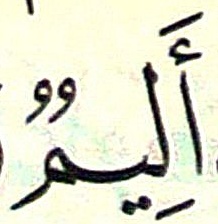 أَلِيمٌ